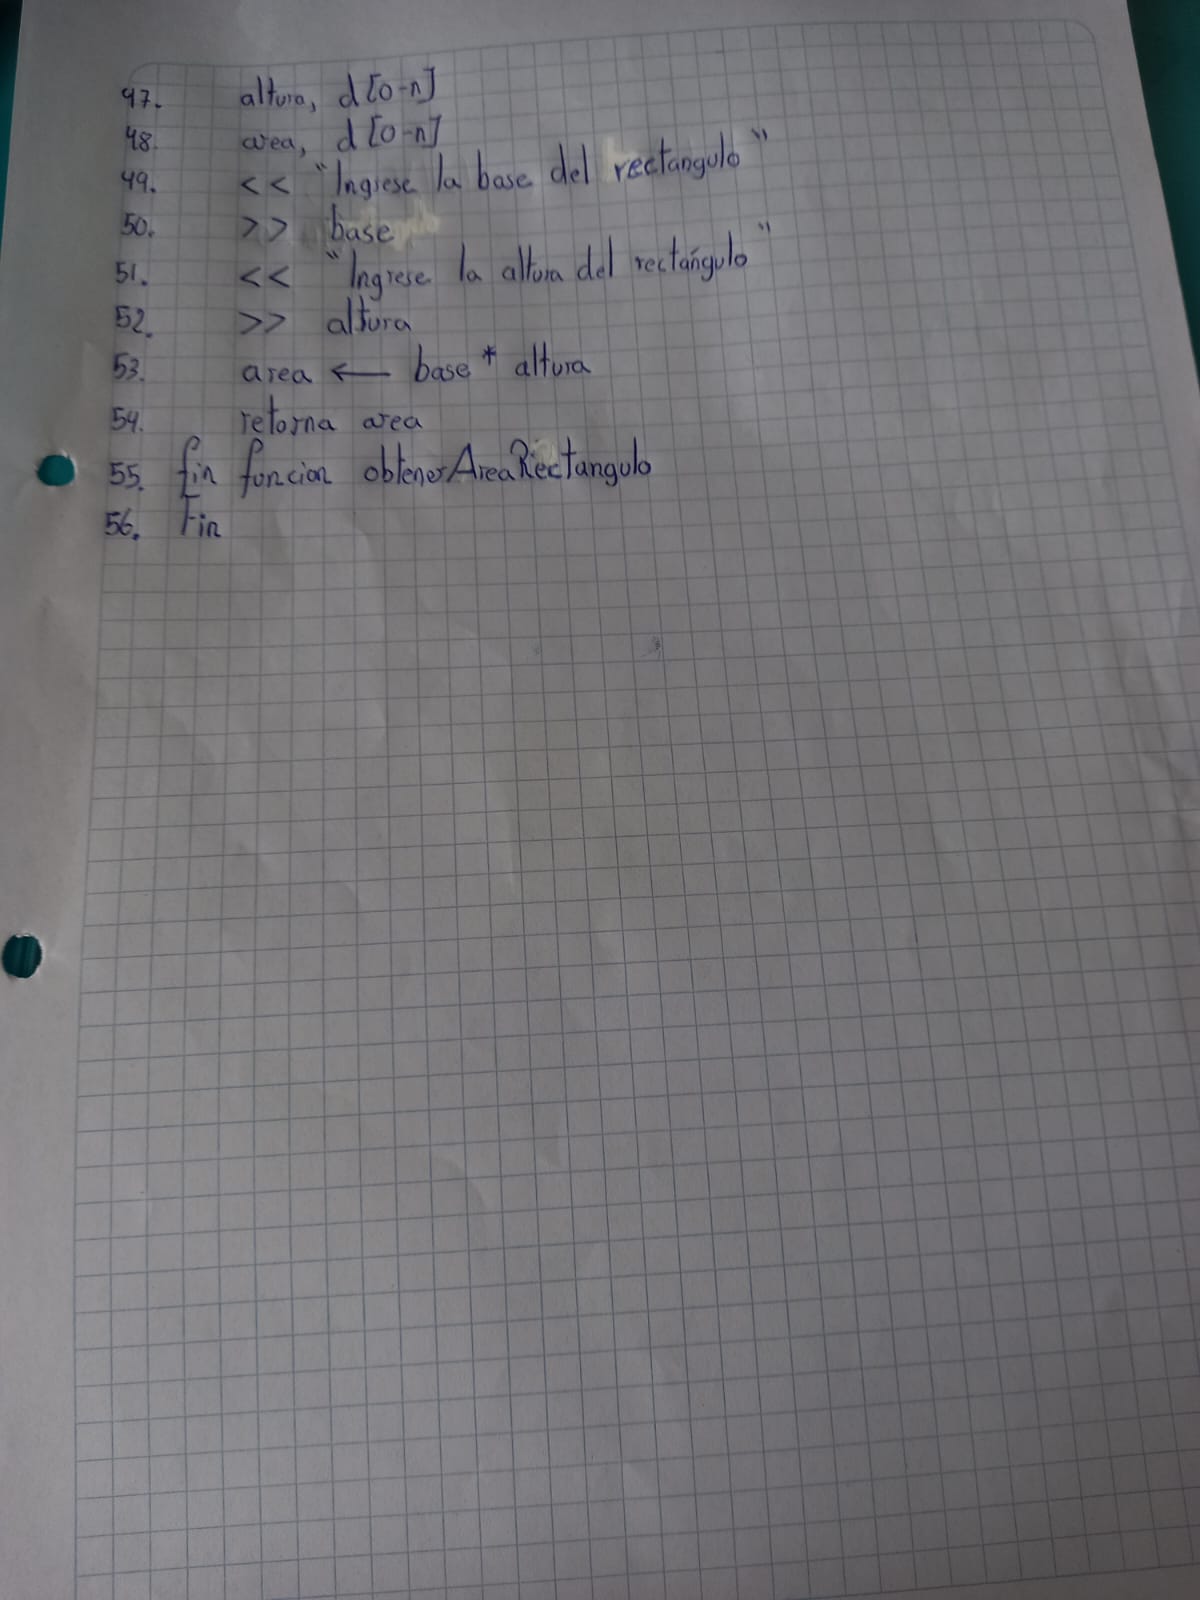 47. altura, d [0-n]
48. area, d [0-n]
49. << "Ingrese la base del rectangulo"
50. >> base
51. << "Ingrese la altura del rectángulo"
52. >> altura
53. area ← base * altura
54. retorna area
55. fin funcion obtenerAreaRectangulo
56. Fin